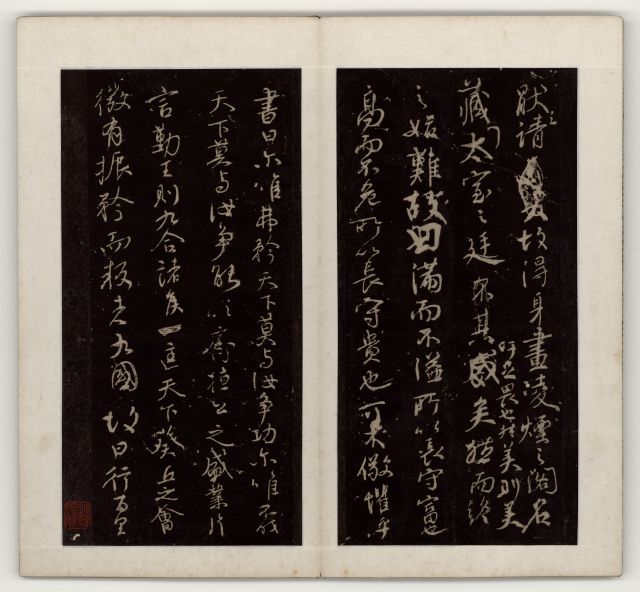 厭之請故得身畫凌煙之閣名
藏太室之廷吁足畏也然美則美
矣然而終
之始難故曰滿而不溢所以長守富也
高而不危所以長守貴也可不儆懼乎
書曰爾唯弗矜天下莫與汝爭功爾唯不伐
天下莫與汝爭能以齊桓公之盛業片
言勤王則九合諸侯一匡天下葵丘之會
微有振矜而叛者九國故曰行百里